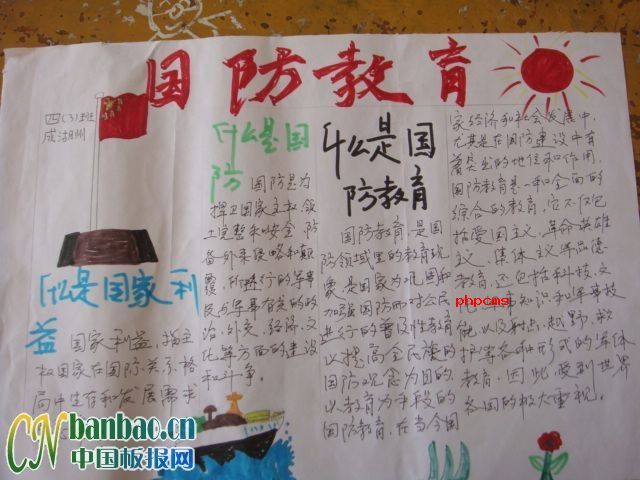 国防教育
四(3)班
成湖州
什么是国家利
益
国家利益,指主
权国家在国际关系格
局中生存和发展需求
什么是国
防
国防是为
捍卫国家主权、领
土完整和安全,防
备外来侵略和颠
覆,所进行的军事
及与军事有关的政
治、外交、经济、文
化等方面的建设
和斗争。
什么是国
防教育
国防教育,是国
防领域里的教育现
象,是国家为巩固和
加强国防而对公民
进行的普及性教育
以提高全民族的
国防观念为目的,
以教育为手段的
国防教育,在当今国
家经济和社会发展中,
尤其是在国防建设中有
着突出的地位和作用,
国防教育是一种全面的
综合的教育,它不仅包
括爱国主义、革命英雄
主义、集体主义、军品德
教育,还包括科技、文
化、军事知识和军事技
能,以及射击、越野、救
护等各种形式的军体
教育,因此,受到世界
各国的极大重视。
phpcms
CN banbao.cn
中国板报网